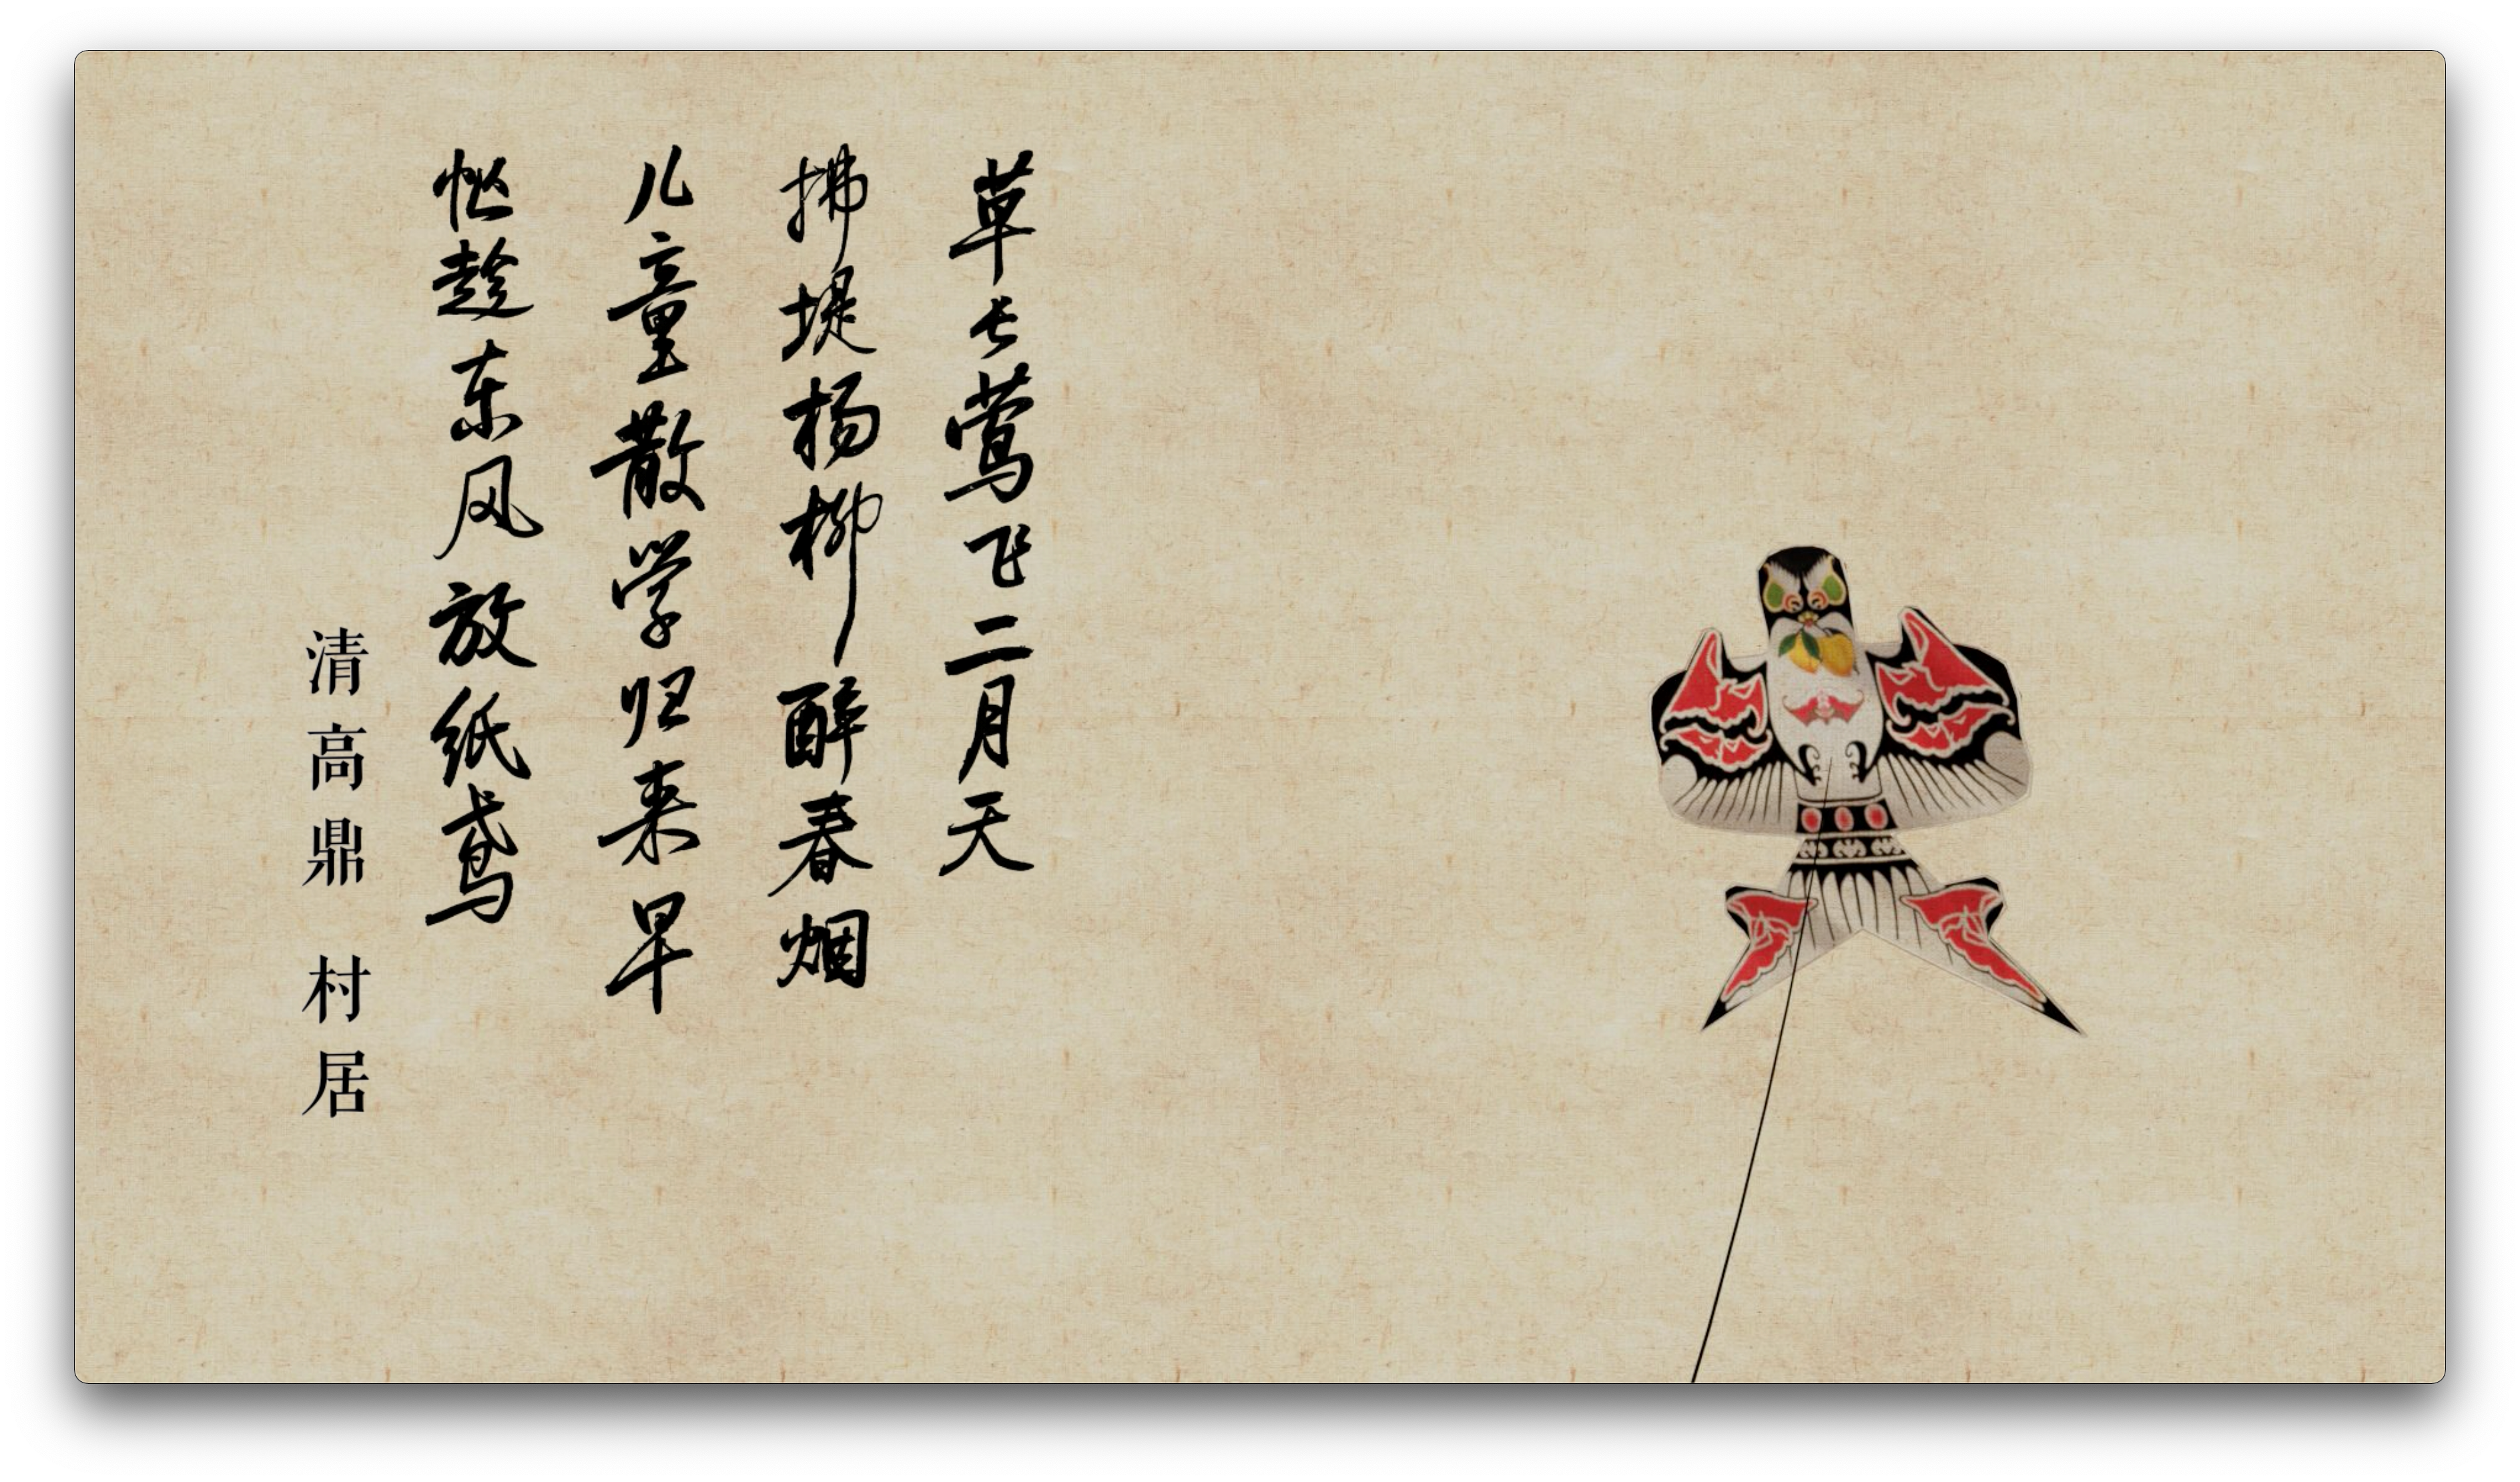 草长莺飞二月天
拂堤杨柳醉春烟
儿童散学归来早
忙趁东风放纸鸢
清高鼎 村居